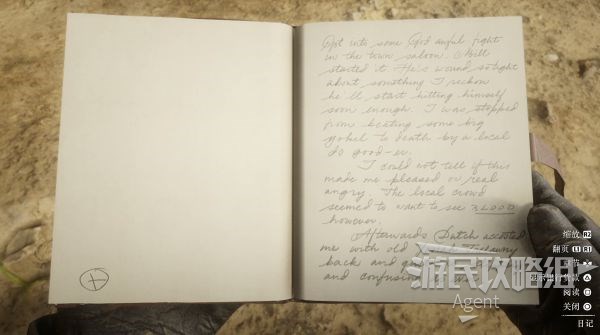 Got into some God awful fight
in the town saloon. Bill
started it. He's wound so tight
about something I reckon
he'll start hitting himself
soon enough. I was stopped
from beating some big
yokel to death by a local
do good-er.
I could not tell if this
made me pleased or real
angry. The local crowd
seemed to want to see BLOOD
however.
Afterwards Dutch accosted
me with old Trelawny
back and
and confusing
游民攻略组
Agent
缩放 R2
翻页 L1 R1
阅读
关闭
日记